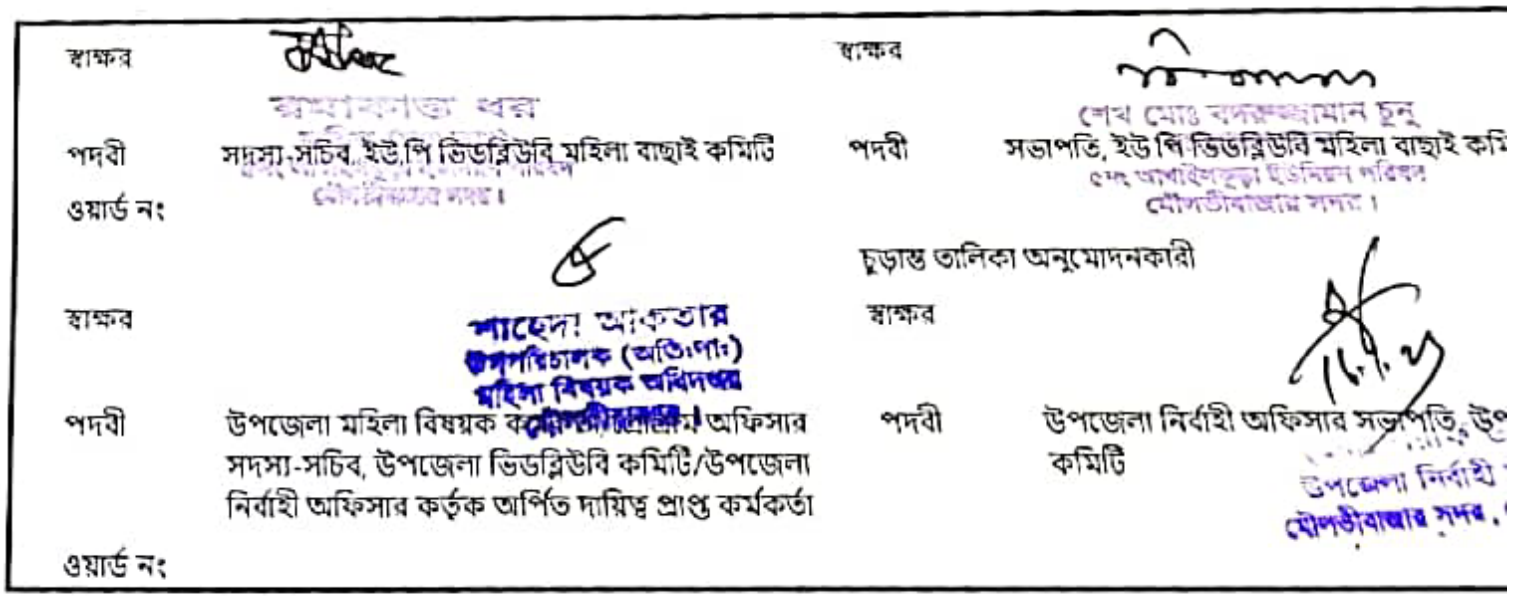 স্বাক্ষর
স্বাক্ষর
রমাকান্ত ধর
শেখ মোঃ বদরুজ্জামান চুনু
পদবী সদস্য-সচিব, ইউ.পি ভিডব্লিউবি মহিলা বাছাই কমিটি
পদবী সভাপতি, ইউ পি ভিডব্লিউবি মহিলা বাছাই কমি
৫নং আখাইলকুড়া ইউনিয়ন পরিষদ
মৌলভীবাজার সদর।
মৌলভীবাজার সদর।
ওয়ার্ড নং
চুড়ান্ত তালিকা অনুমোদনকারী
স্বাক্ষর
শাহেদা আকতার
উপপরিচালক (অতিঃদাঃ)
মহিলা বিষয়ক অধিদপ্তর
মৌলভীবাজার।
স্বাক্ষর
পদবী উপজেলা মহিলা বিষয়ক অফিসার
সদস্য-সচিব, উপজেলা ভিডব্লিউবি কমিটি/উপজেলা
নির্বাহী অফিসার কর্তৃক অর্পিত দায়িত্ব প্রাপ্ত কর্মকর্তা
পদবী উপজেলা নির্বাহী অফিসার সভাপতি, উপ
কমিটি
উপজেলা নির্বাহী
মৌলভীবাজার সদর,
ওয়ার্ড নং